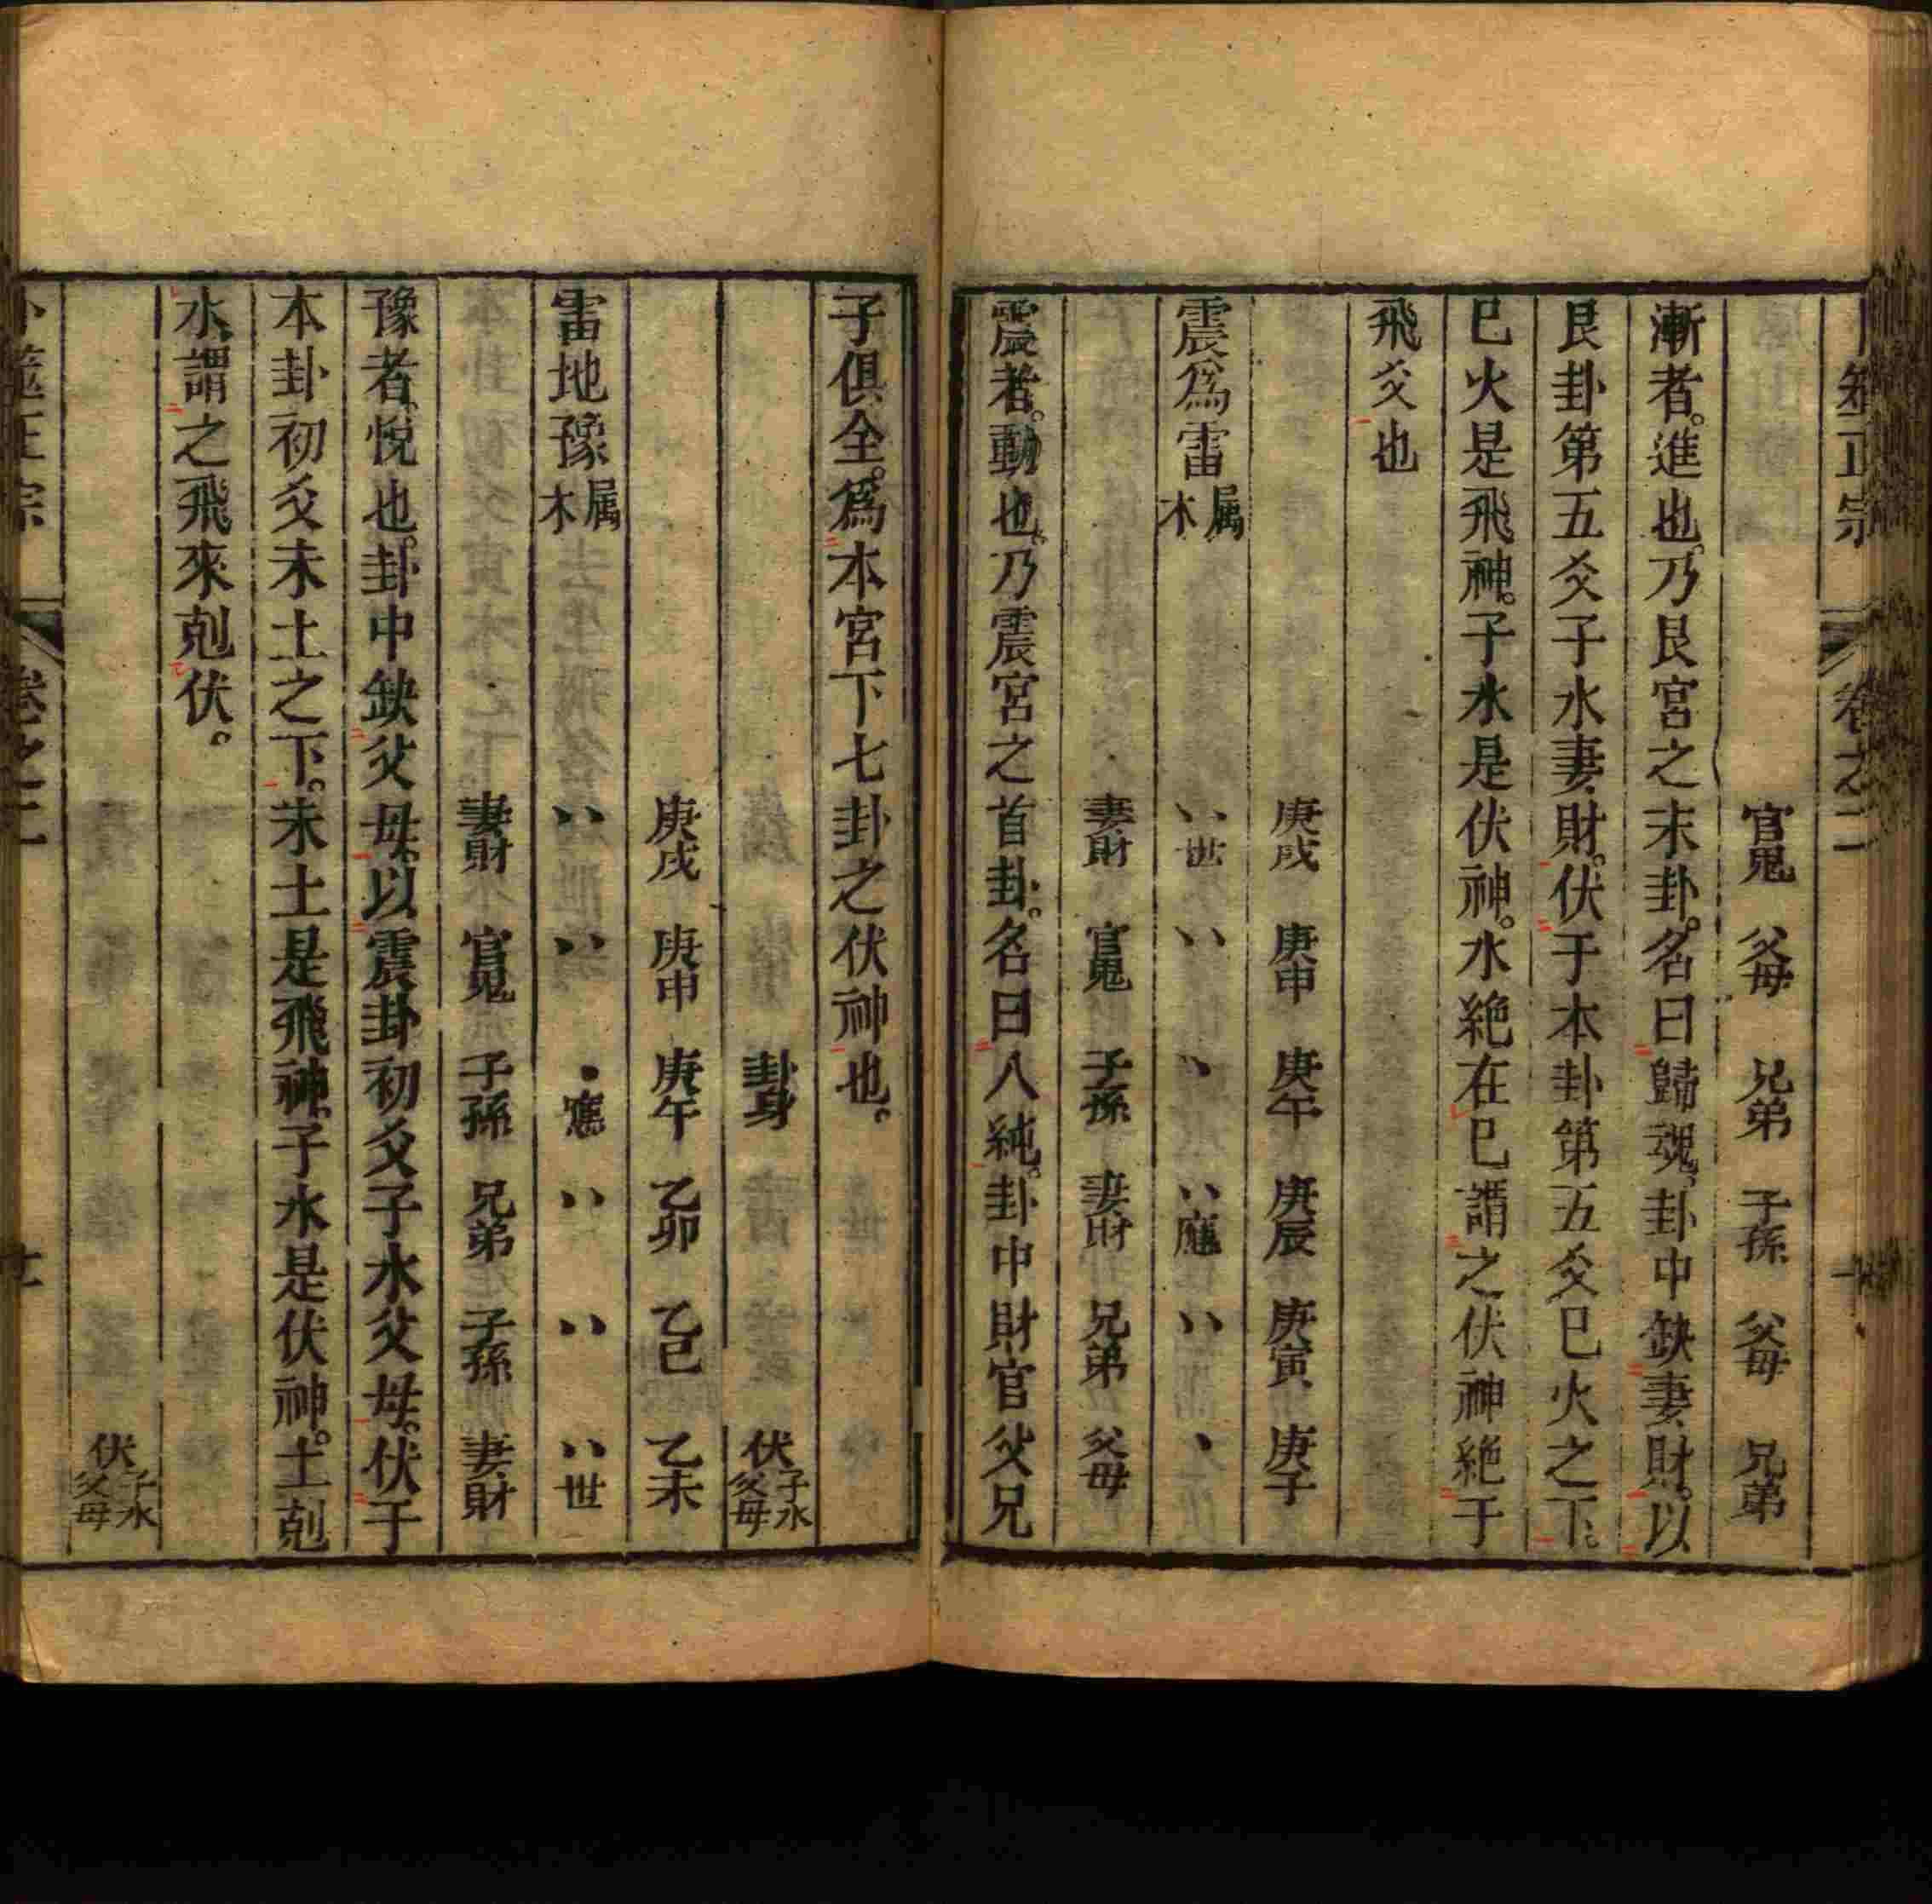 筮正宗 卷之二
官鬼 父母 兄弟 子孫 父母 兄弟
漸者。進也。乃艮宮之末卦。名曰歸魂。卦中缺妻財。以
艮卦第五爻子水妻財。伏于本卦第五爻巳火之下。
巳火是飛神。子水是伏神。水絶在巳謂之伏神絶于
飛爻也
庚戌 庚申 庚午 庚辰 庚寅 庚子
震爲雷 属木 〃世 〃 、 〃應 〃 、
妻財 官鬼 子孫 妻財 兄弟 父母
震者。動也。乃震宮之首卦。名曰八純。卦中財官父兄
子俱全。爲本宮下七卦之伏神也。
卦身 伏子水父母
庚戌 庚申 庚午 乙卯 乙巳 乙未
雷地豫 属木 〃 〃 、應 〃 〃 〃世
妻財 官鬼 子孫 兄弟 子孫 妻財
豫者。悅也。卦中缺父母。以震卦初爻子水父母。伏于
本卦初爻未土之下。未土是飛神。子水是伏神。土剋
水。謂之飛來剋伏。
伏子水父母
卜筮正宗 卷之二